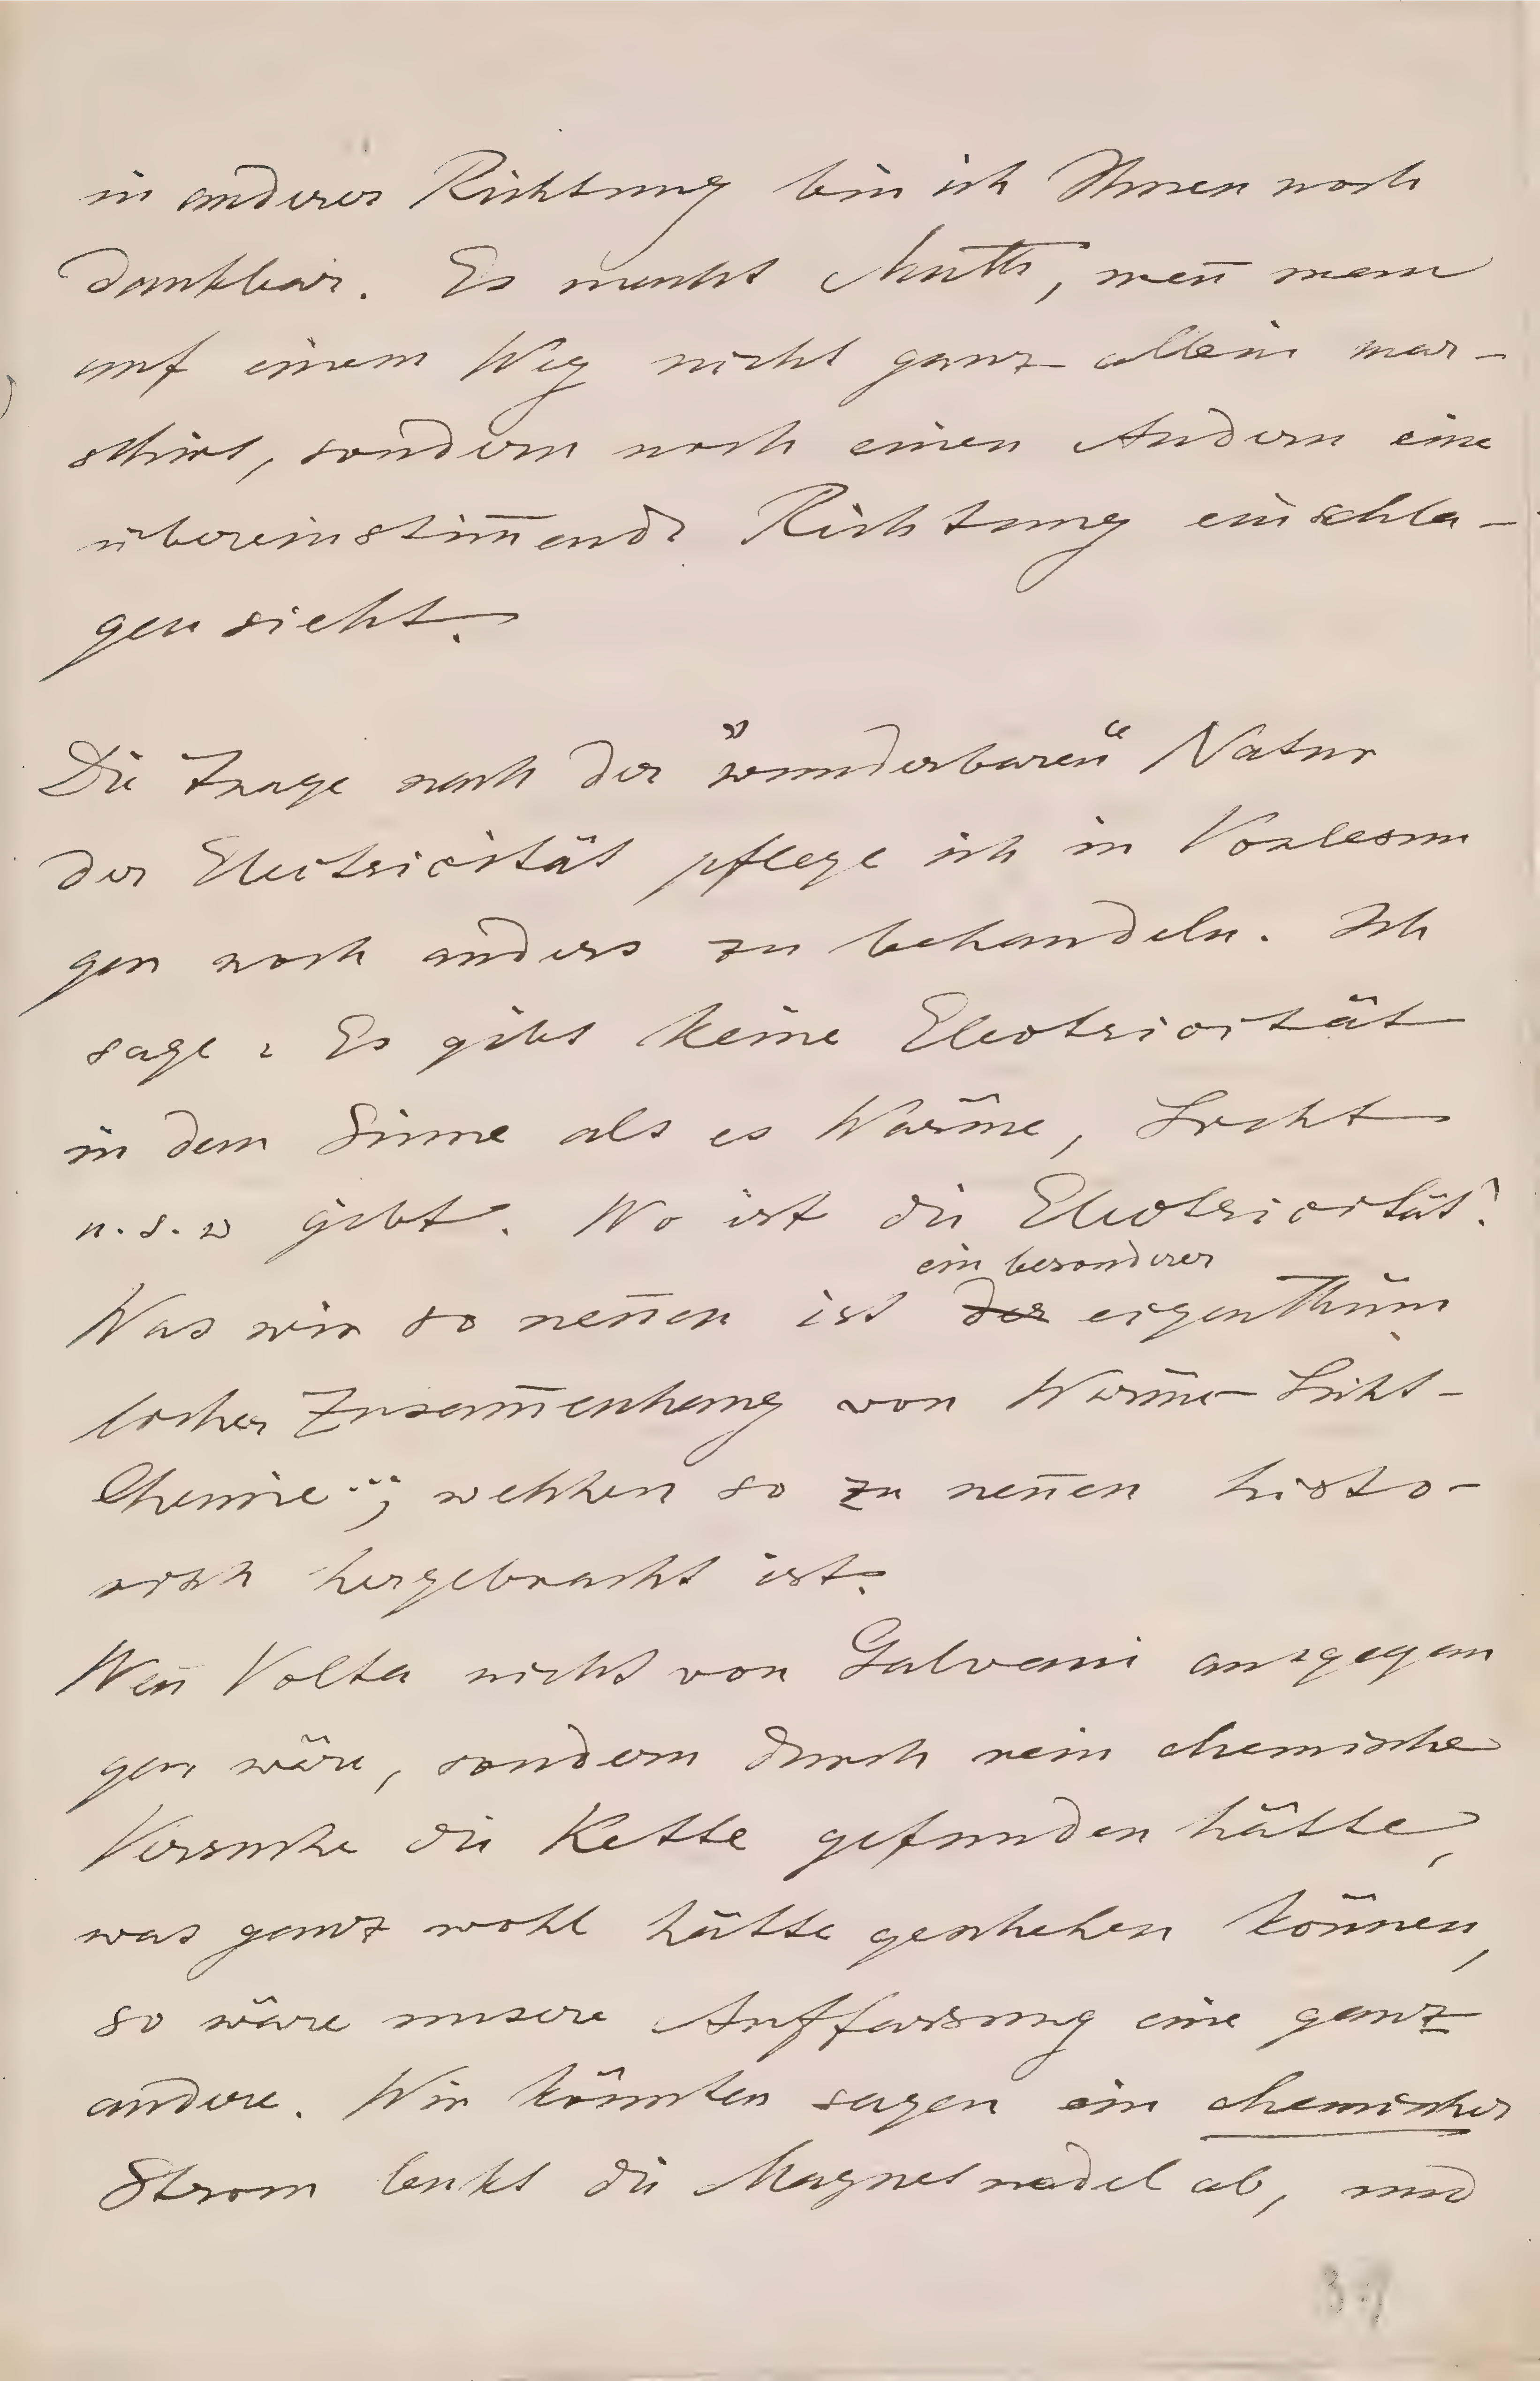 in anderer Richtung bin ich Ihnen noch
dankbar. Es macht Muth, wen̄ man
auf einem Weg nicht ganz allein mar-
schirt, sondern noch einen Andern eine
übereinstim̄ende Richtung einschla-
gen sieht.
Die Frage nach der "wunderbaren" Natur
der Electricität pflege ich in Vorlesun
gen noch anders zu behandeln. Ich
sage: Es gibt keine Electricität
in dem Sinne als es Wärme, Licht
u.s.w gibt. Wo ist die Electricität?
ein besonderer
Was wir so nen̄en ist der eigenthüm
licher Zusam̄enhang von Wärme- Licht-
Chemie..; welchen so zu nen̄en histo-
risch hergebracht ist.
Wen̄ Volta nicht von Galvani ausgegan
gen wäre, sondern durch rein chemische
Versuche die Kette gefunden hätte,
was ganz wohl hätte geschehen können,
so wäre unsere Auffassung eine ganz
andere. Wir könnten sagen ein chemischer
Strom lenkt die Magnetnadel ab, und
37